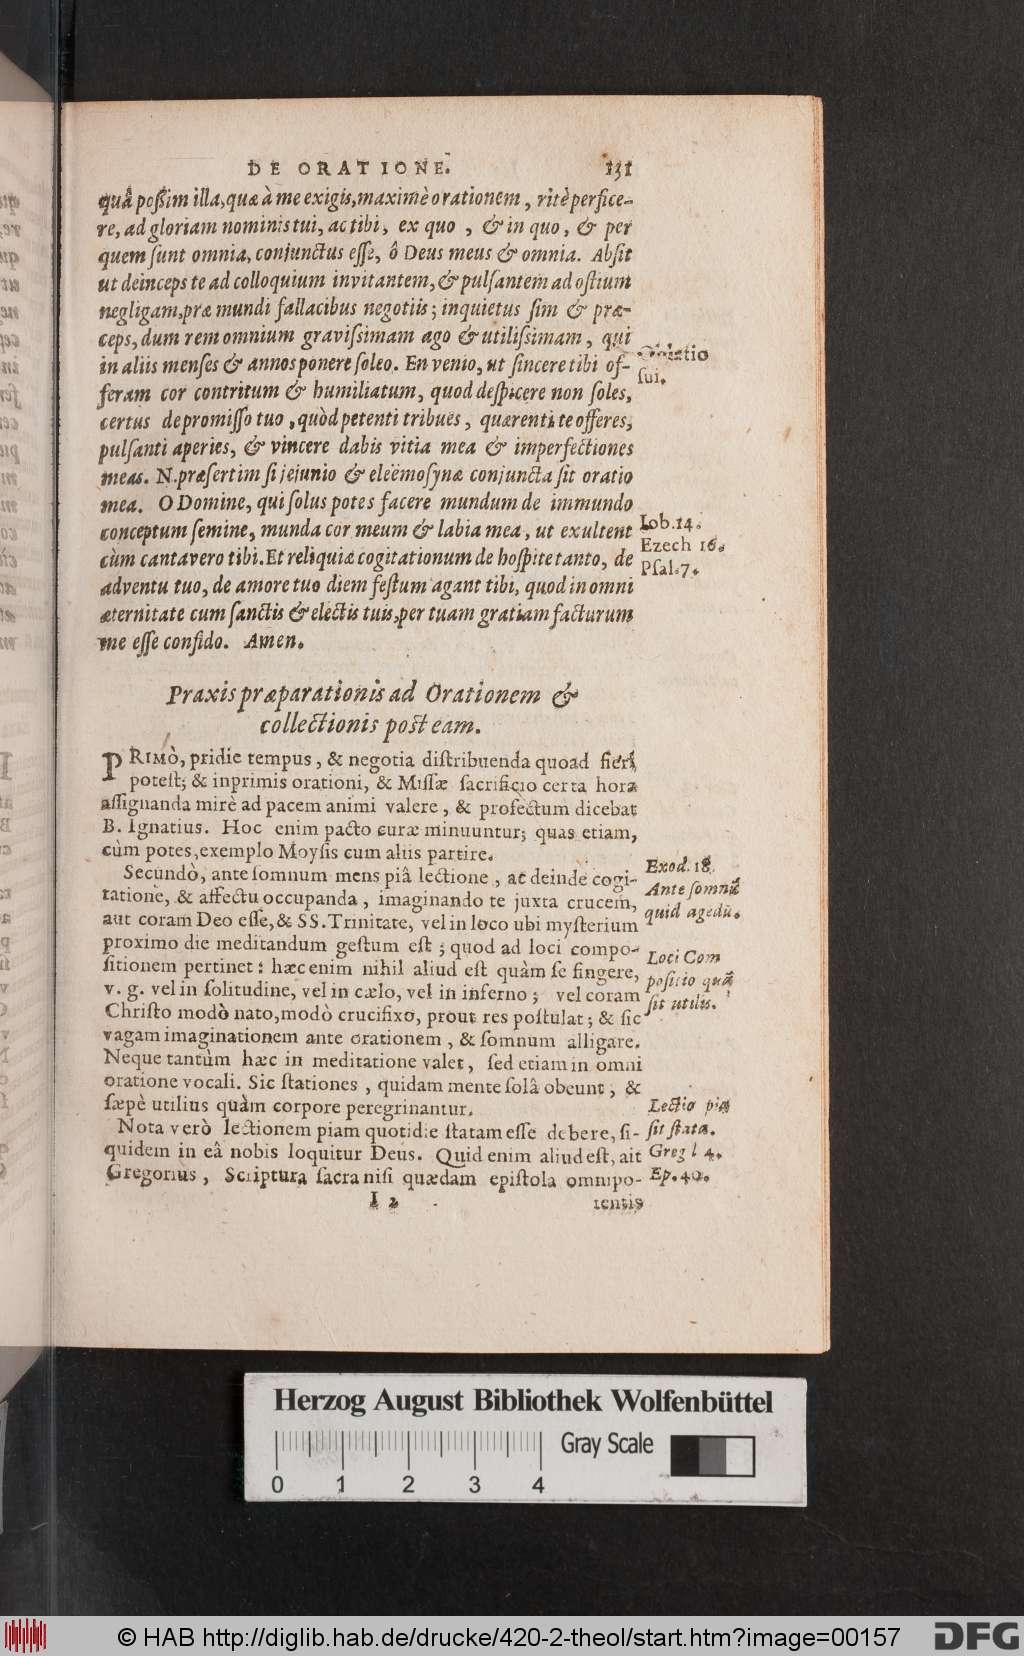 DE ORATIONE. 131
quâ poßim illa, quæ à me exigis, maximè orationem, ritè perfice-
re, ad gloriam nominis tui, ac tibi, ex quo, & in quo, & per
quem ſunt omnia, conjunctus eſſe, ô Deus meus & omnia. Abſit
ut deinceps te ad colloquium invitantem, & pulſantem ad oſtium
negligam, præ mundi fallacibus negotiis; inquietus ſim & præ-
ceps, dum rem omnium graviſsimam ago & utiliſsimam, qui
in aliis menſes & annos ponere ſoleo. En venio, ut ſincere tibi of-
feram cor contritum & humiliatum, quod deſpicere non ſoles,
certus de promiſſo tuo, quòd petenti tribues, quærenti te offeres,
pulſanti aperies, & vincere dabis vitia mea & imperfectiones
meas. N. præſertim ſi jejunio & eleëmoſynæ conjuncta ſit oratio
mea. O Domine, qui ſolus potes facere mundum de immundo
conceptum ſemine, munda cor meum & labia mea, ut exultent
cùm cantavero tibi. Et reliquiæ cogitationum de hoſpite tanto, de
adventu tuo, de amore tuo diem feſtum agant tibi, quod in omni
æternitate cum ſanctis & electis tuis, per tuam gratiam facturum
me eſſe confido. Amen.
Oblatio
ſui.
Iob. 14.
Ezech 16.
Pſal. 7.
Praxis præparationis ad Orationem &
collectionis poſt eam.
PRIMÒ, pridie tempus, & negotia diſtribuenda quoad fieri
poteſt; & inprimis orationi, & Miſſæ ſacrificio certa hora
aſſignanda mirè ad pacem animi valere, & profectum dicebat
B. Ignatius. Hoc enim pacto curæ minuuntur; quas etiam,
cùm potes, exemplo Moyſis cum aliis partire.
Secundò, ante ſomnum mens piâ lectione, ac deinde cogi-
tatione, & affectu occupanda, imaginando te juxta crucem,
aut coram Deo eſſe, & SS. Trinitate, vel in loco ubi myſterium
proximo die meditandum geſtum eſt; quod ad loci compo-
ſitionem pertinet: hæc enim nihil aliud eſt quàm ſe fingere,
v. g. vel in ſolitudine, vel in cælo, vel in inferno; vel coram
Chriſto modò nato, modò crucifixo, prout res poſtulat; & ſic
vagam imaginationem ante orationem, & ſomnum alligare.
Neque tantùm hæc in meditatione valet, ſed etiam in omni
oratione vocali. Sic ſtationes, quidam mente ſolâ obeunt, &
ſæpè utilius quàm corpore peregrinantur.
Nota verò lectionem piam quotidie ſtatam eſſe debere, ſi-
quidem in eâ nobis loquitur Deus. Quid enim aliud eſt, ait
Gregorius, Scriptura ſacra niſi quædam epiſtola omnipo-
I 2 tentis
Exod. 18.
Ante ſomnũ
quid agedũ.
Loci Com
poſitio quã
ſit utilis.
Lectio pia
ſit ſtata.
Greg l 4.
Ep. 40.
Herzog August Bibliothek Wolfenbüttel
Gray Scale
0 1 2 3 4
© HAB http://diglib.hab.de/drucke/420-2-theol/start.htm?image=00157
DFG